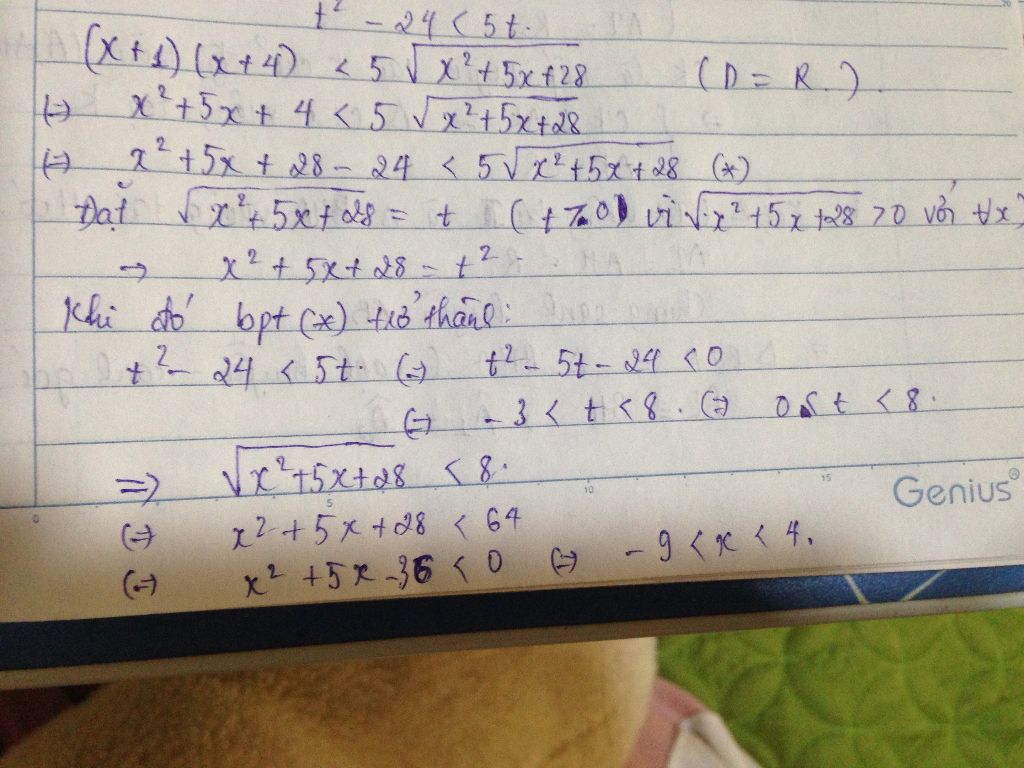 t² - 24 < 5t.
(x+1)(x+4) < 5√x²+5x+28 (D = R.).
(=) x²+5x+4 < 5√x²+5x+28
(=) x²+5x+28-24 < 5√x²+5x+28 (*)
Đặt √x²+5x+28 = t (t ≥ 0) vì √x²+5x+28 > 0 với ∀x)
→ x²+5x+28 = t².
Khi đó bpt (*) trở thành:
t² - 24 < 5t. (=) t² - 5t - 24 < 0
(=) -3 < t < 8. (=) 0 ≤ t < 8.
=> √x²+5x+28 < 8.
Genius®
0 5 10 15
(=) x²+5x+28 < 64
(=) x²+5x-36 < 0 (=) -9 < x < 4.